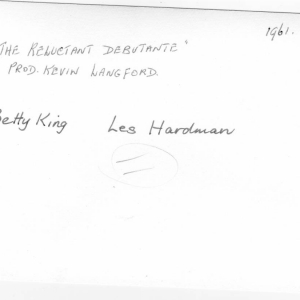 1961.
"THE RELUCTANT DEBUTANTE"
PROD. KEVIN LANGFORD.
Betty King Les Hardman